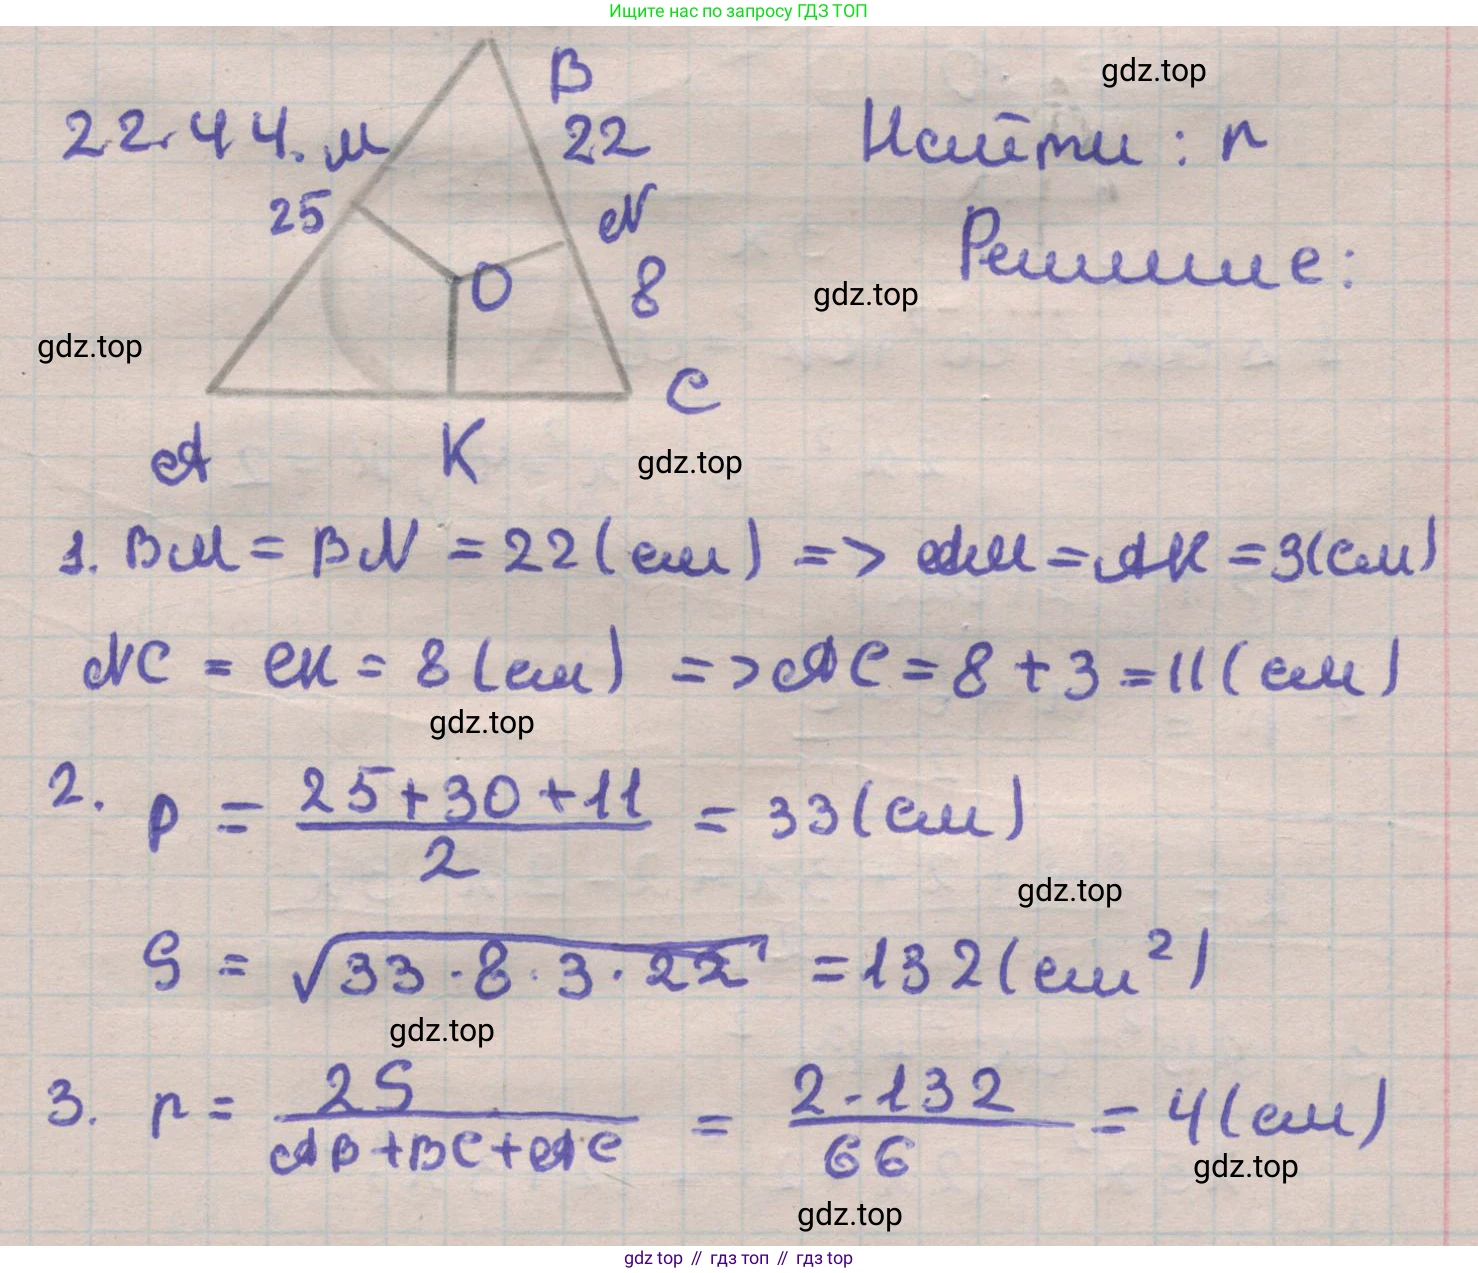 Ищите нас по запросу ГДЗ ТОП
B
gdz.top
22.44. M
22
Найти : r
25
N
Решение:
O
8
gdz.top
gdz.top
C
A
K
gdz.top
1. BM = BN = 22 (см) => AM = AK = 3(см)
NC = CK = 8 (см) => AC = 8 + 3 = 11 (см)
gdz.top
2. p = \frac{25+30+11}{2} = 33 (см)
gdz.top
S = √33 · 8 · 3 · 22 = 132 (см²)
gdz.top
3. r = \frac{2S}{AB+BC+AC} = \frac{2·132}{66} = 4 (см)
gdz.top
gdz.top
gdz top // гдз топ // гдз top